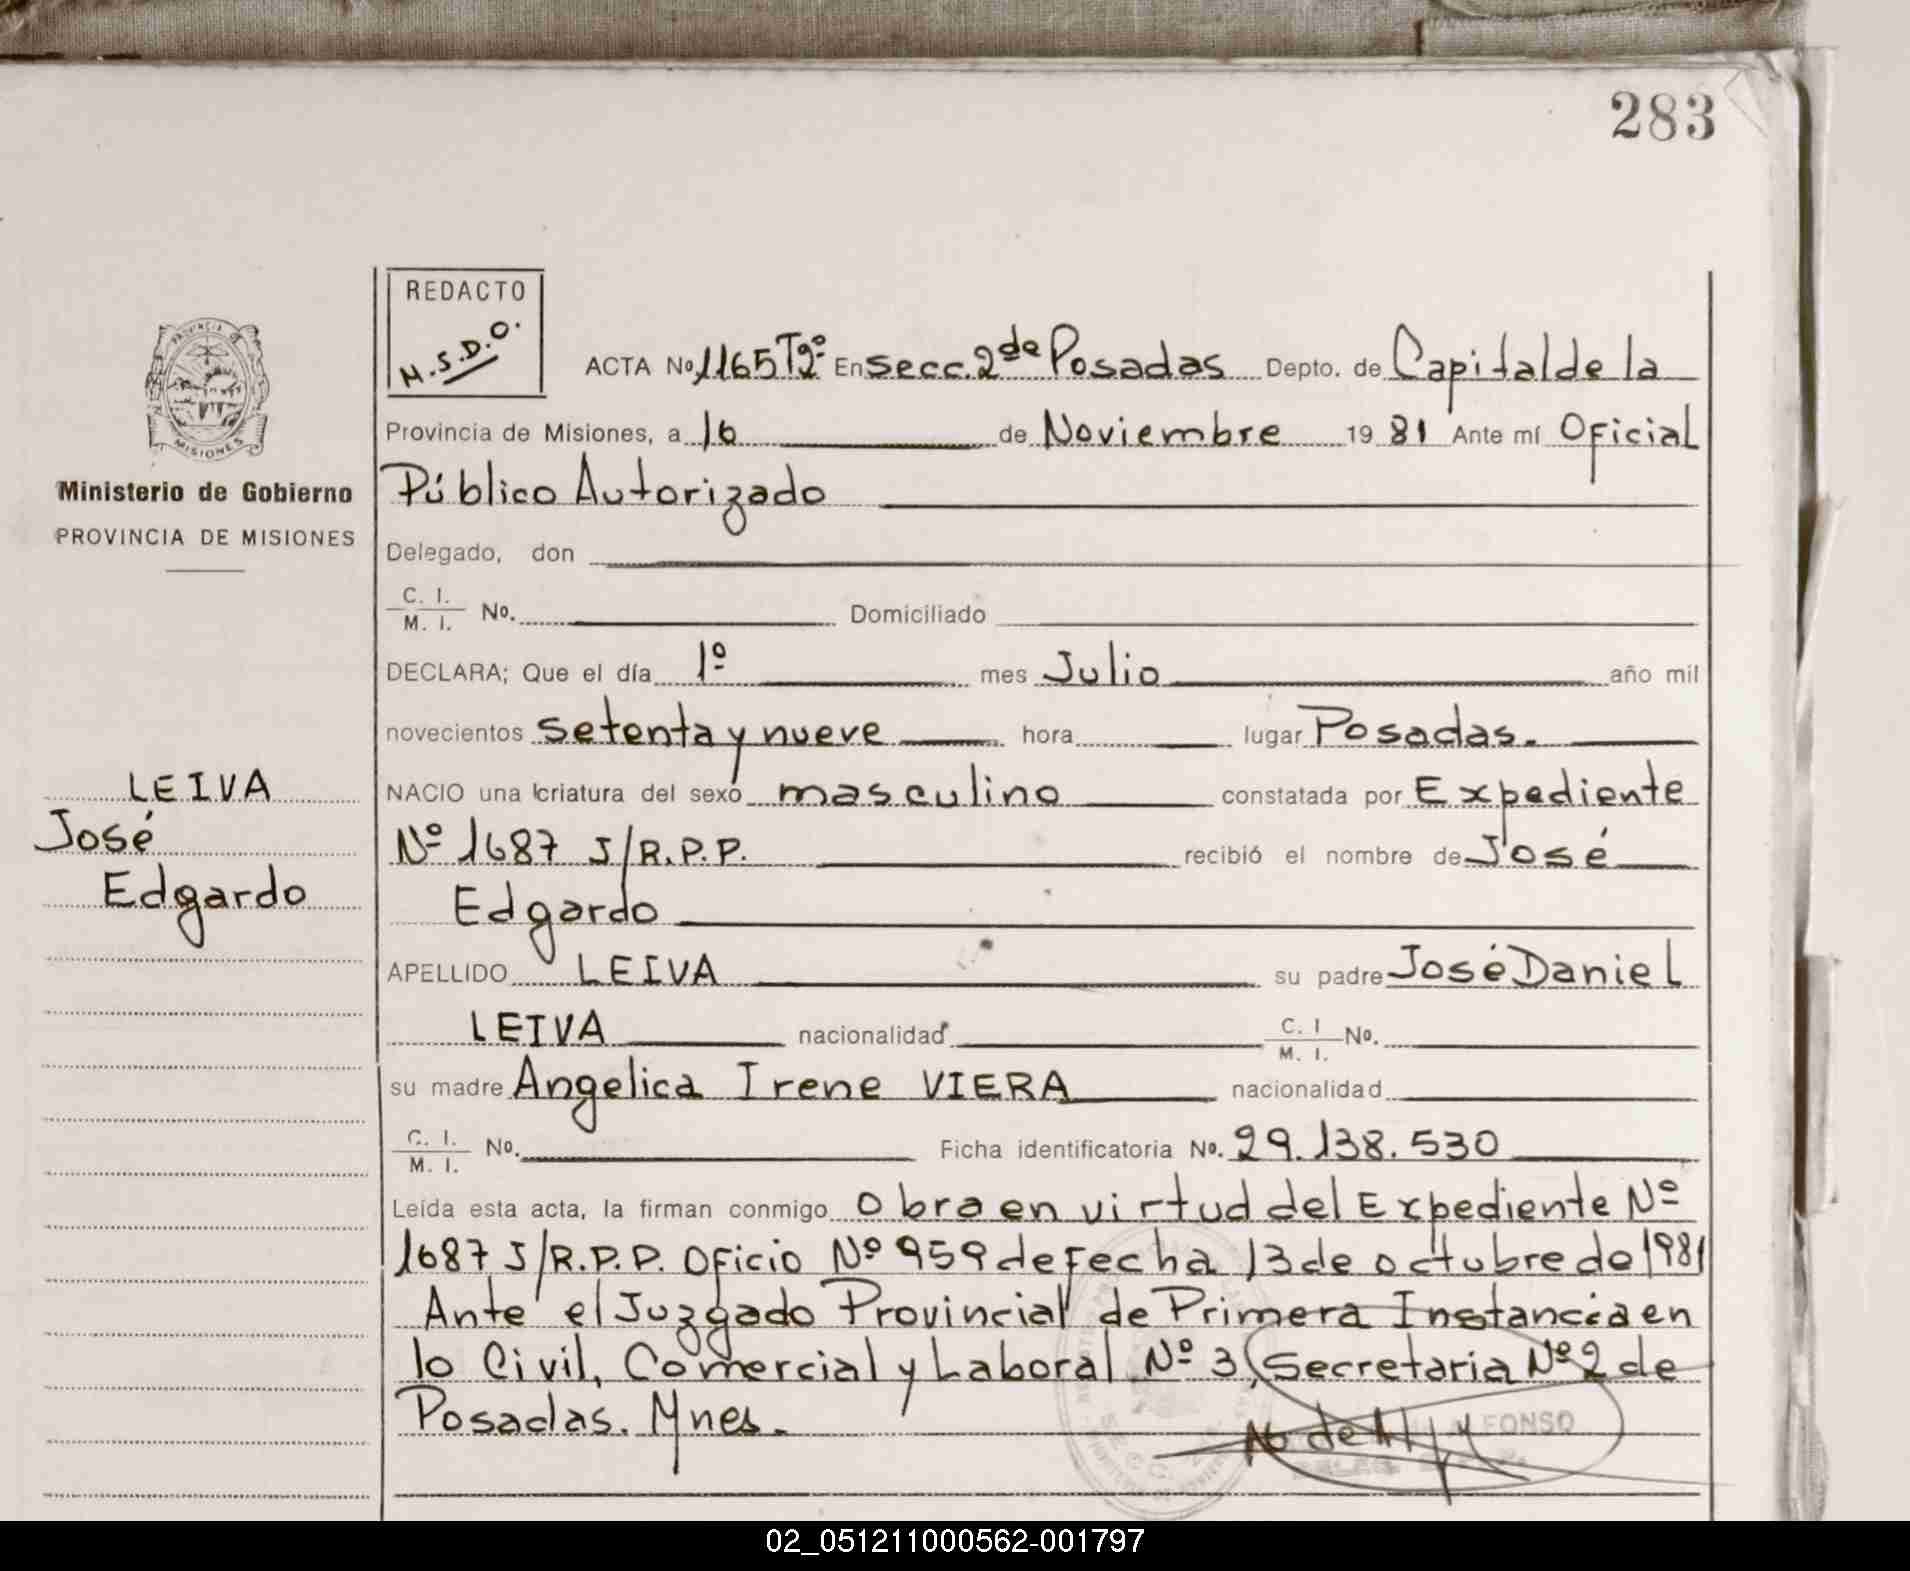 283
REDACTO
M.S.D.O.
ACTA No 1165 Tº2º En secc. 2da Posadas Depto. de Capital de la
Provincia de Misiones, a 16 de Noviembre 1981 Ante mí Oficial
Público Autorizado
Delegado, don
C. I. M. I. No. Domiciliado
DECLARA; Que el día 1º mes Julio año mil
novecientos setenta y nueve hora lugar Posadas.
NACIO una criatura del sexo masculino constatada por Expediente
Nº 1687 J/R.P.P. recibió el nombre de José
Edgardo
APELLIDO LEIVA su padre José Daniel
LEIVA nacionalidad C. I M. I. No.
su madre Angelica Irene VIERA nacionalidad
C. I. M. I. No. Ficha identificatoria No. 29.138.530
Leída esta acta, la firman conmigo Obra en virtud del Expediente Nº
1687 J/R.P.P. Oficio Nº 959 de Fecha 13 de octubre de 1981
Ante el Juzgado Provincial de Primera Instancia en
lo Civil, Comercial y Laboral Nº 3, Secretaria Nº 2 de
Posadas. Mnes.
FONSO
PROVINCIA
MISIONES
Ministerio de Gobierno
PROVINCIA DE MISIONES
LEIVA
José
Edgardo
02_051211000562-001797